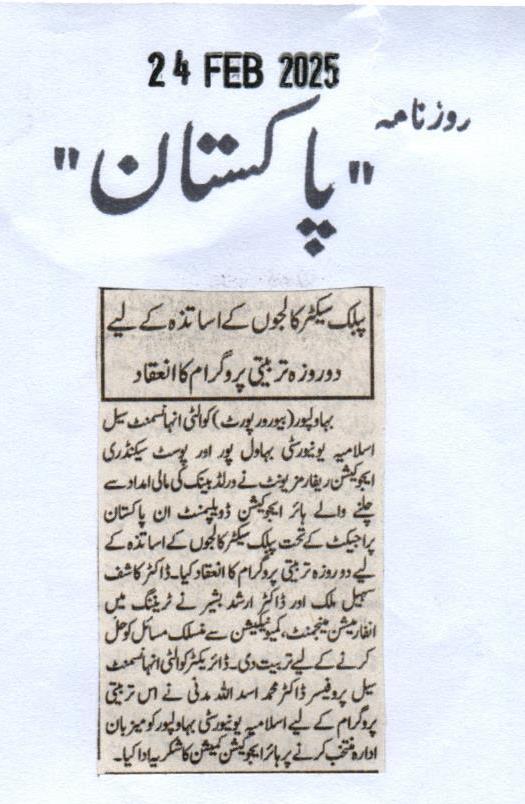 24 FEB 2025
روزنامہ
"پاکستان"
پبلک سیکٹر کالجوں کے اساتذہ کے لیے
دو روزہ تربیتی پروگرام کا انعقاد
بہاولپور(بیورورپورٹ) کوالٹی انہانسمنٹ سیل
اسلامیہ یونیورسٹی بہاول پور اور پوسٹ سیکنڈری
ایجوکیشن ریفارمز یونٹ نے ورلڈ بینک کی مالی امداد سے
چلنے والے ہائر ایجوکیشن ڈویلپمنٹ ان پاکستان
پراجیکٹ کے تحت پبلک سیکٹر کالجوں کے اساتذہ کے
لیے دو روزہ تربیتی پروگرام کا انعقاد کیا۔ ڈاکٹر کاشف
سہیل ملک اور ڈاکٹر ارشد بشیر نے ٹریننگ میں
انفارمیشن مینجمنٹ، کمیونیکیشن سے منسلک مسائل کو حل
کرنے کے لیے تربیت دی۔ ڈائریکٹر کوالٹی انہانسمنٹ
سیل پروفیسر ڈاکٹر محمد اسد اللہ مدنی نے اس تربیتی
پروگرام کے لیے اسلامیہ یونیورسٹی بہاولپور کو میزبان
ادارہ منتخب کرنے پر ہائر ایجوکیشن کمیشن کا شکریہ ادا کیا۔